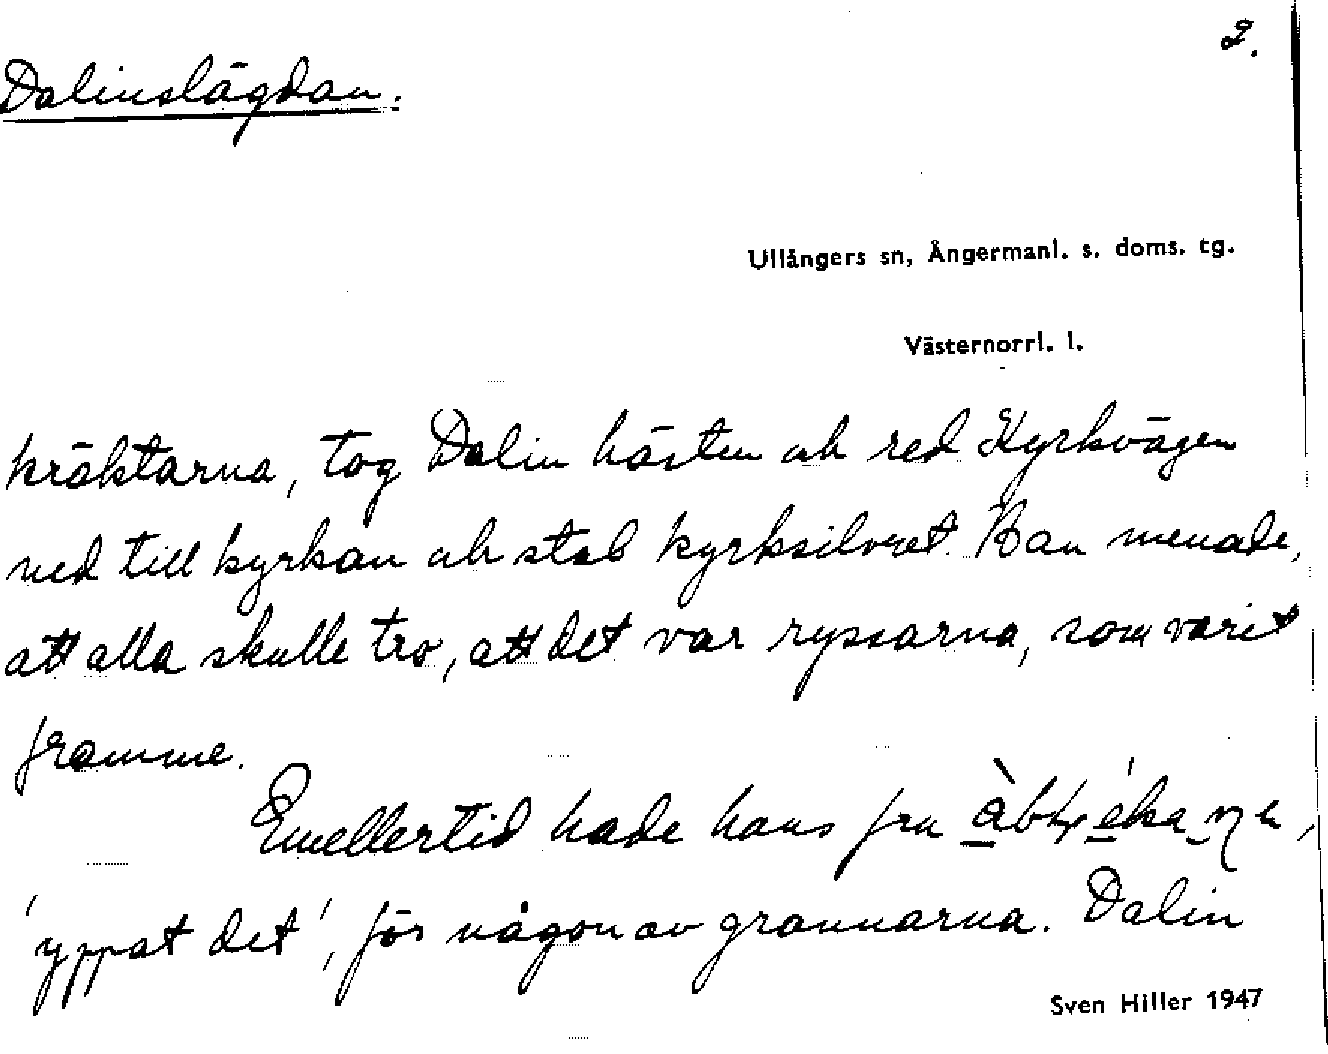 2.
Dalinslägdan.
Ullångers sn, Ångermanl. s. doms. tg.
Västernorrl. l.
kräktarna, tog Dalin hästen och red Kyrkvägen
ned till kyrkan och stal kyrksilvret. Han menade,
att alla skulle tro, att det var ryssarna, som varit
framme.
Emellertid hade hans fru
'yppat det', för någon av grannarna. Dalin
Sven Hiller 1947